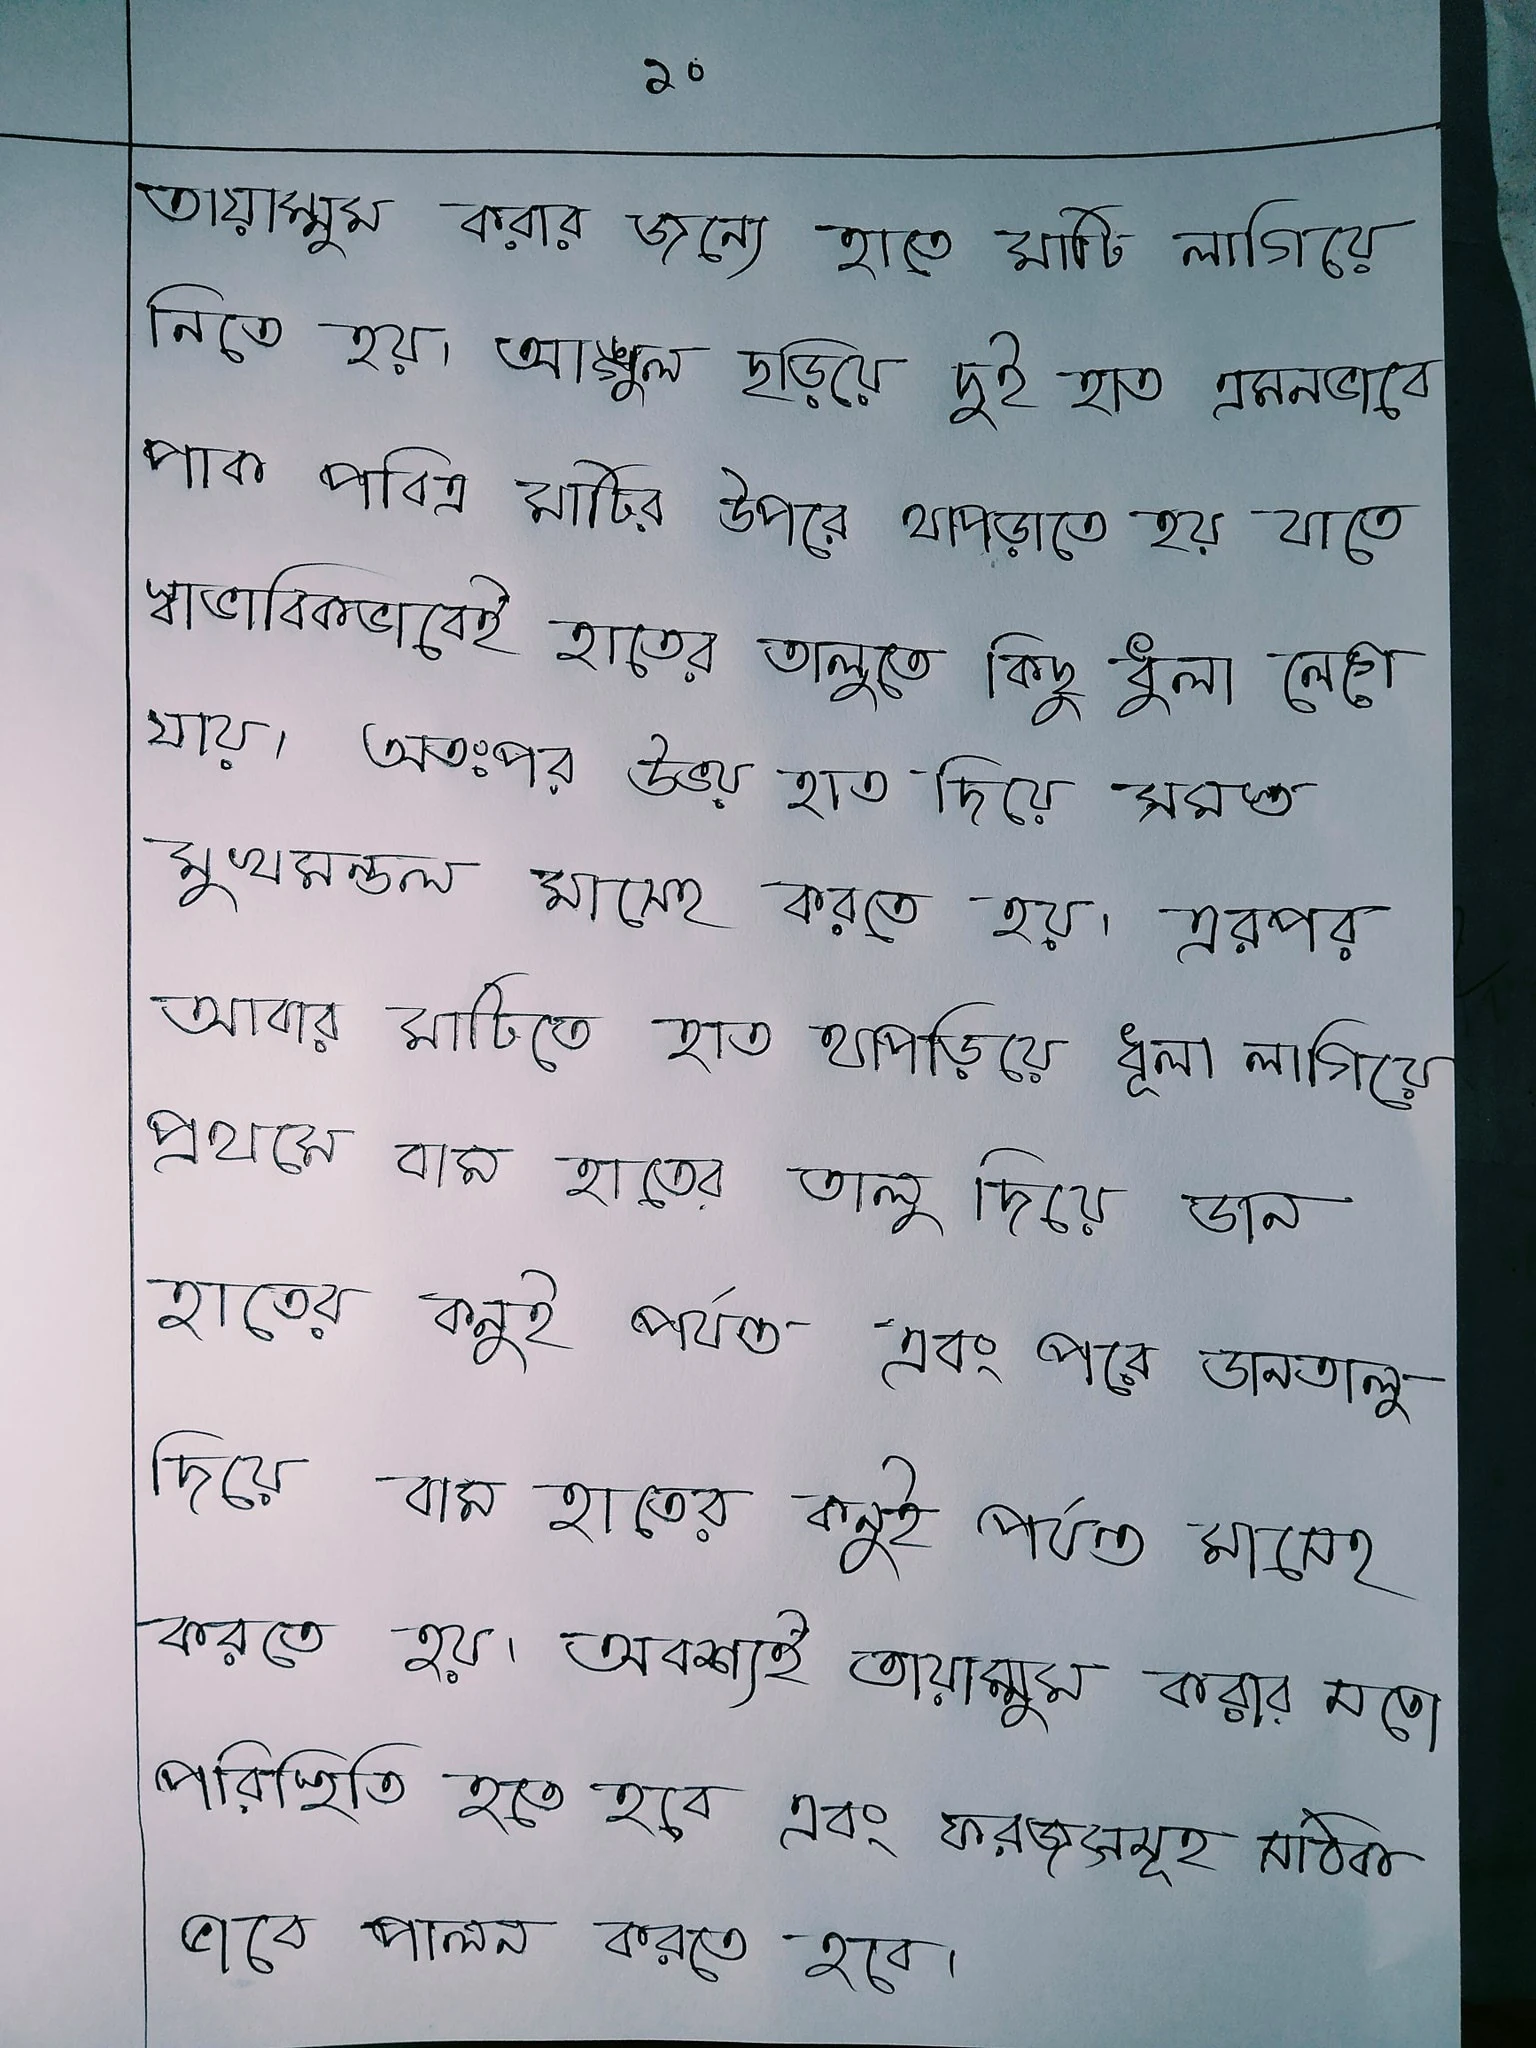 ২০
তায়াম্মুম করার জন্যে হাতে মাটি লাগিয়ে
নিতে হয়। আঙ্গুল ছড়িয়ে দুই হাত এমনভাবে
পাক পবিত্র মাটির উপরে থাপড়াতে হয় যাতে
স্বাভাবিকভাবেই হাতের তালুতে কিছু ধুলা লেগে
যায়। অতঃপর উভয় হাত দিয়ে সমস্ত
মুখমন্ডল মাসেহ করতে হয়। এরপর
আবার মাটিতে হাত থাপড়িয়ে ধূলা লাগিয়ে
প্রথমে বাম হাতের তালু দিয়ে ডান
হাতের কনুই পর্যন্ত এবং পরে ডানতালু
দিয়ে বাম হাতের কনুই পর্যন্ত মাসেহ
করতে হয়। অবশ্যই তায়াম্মুম করার মতো
পরিস্থিতি হতে হবে এবং ফরজসমূহ সঠিক
ভাবে পালন করতে হবে।